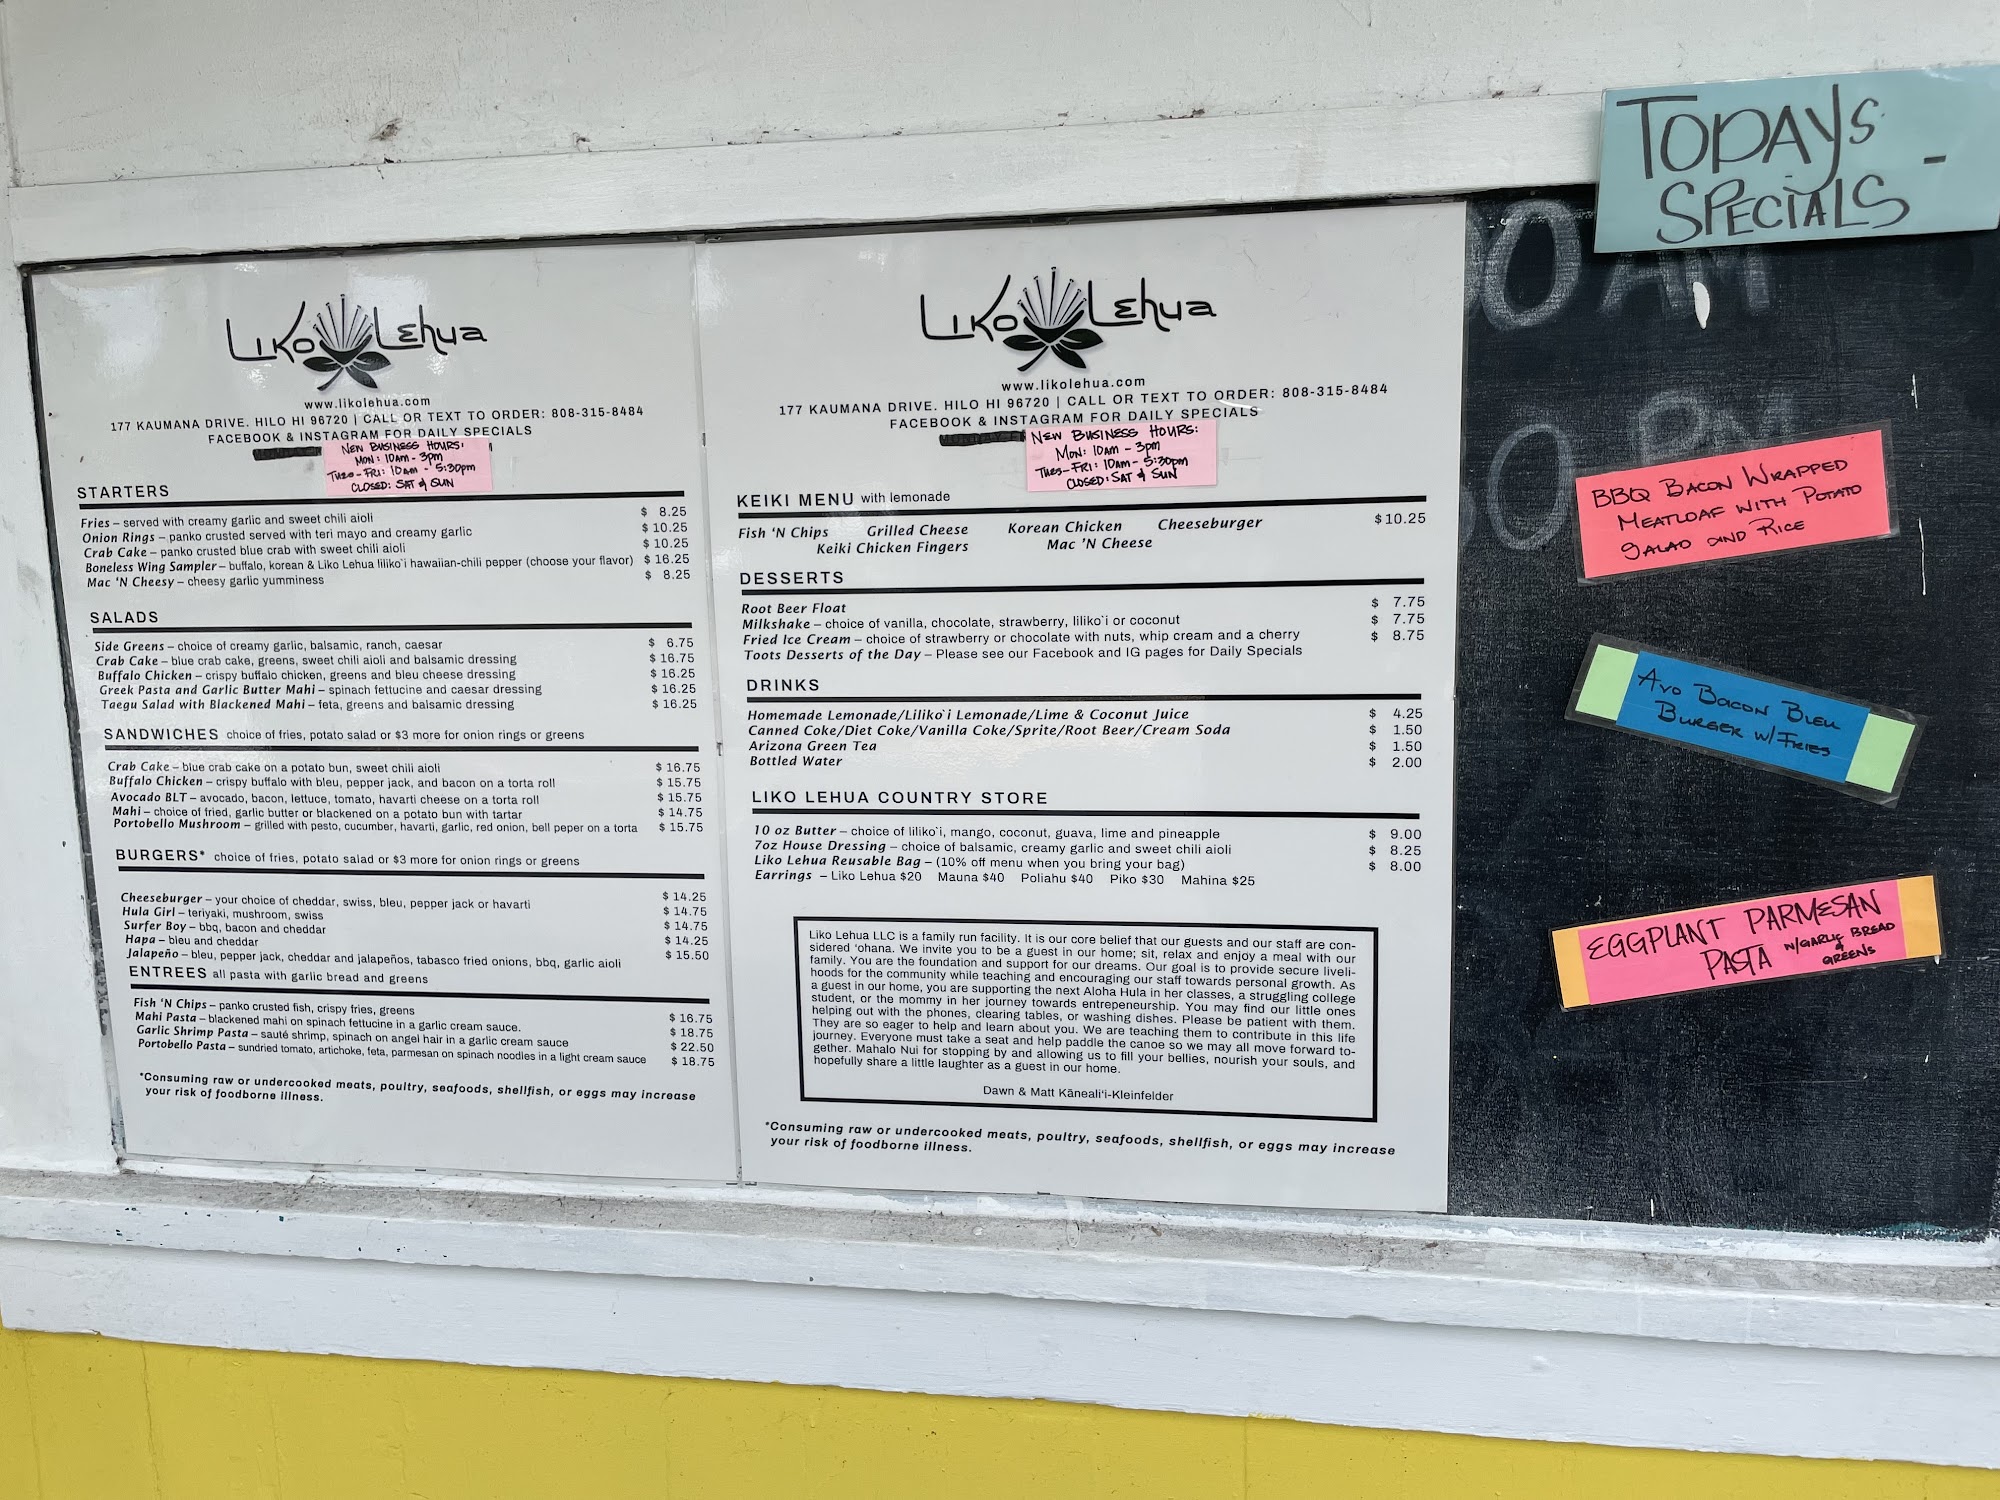 Liko Lehua
www.likolehua.com
177 KAUMANA DRIVE. HILO HI 96720 | CALL OR TEXT TO ORDER: 808-315-8484
FACEBOOK & INSTAGRAM FOR DAILY SPECIALS
NEW BUSINESS HOURS:
MON: 10AM - 3PM
TUES - FRI: 10AM - 5:30PM
CLOSED: SAT & SUN
STARTERS
Fries – served with creamy garlic and sweet chili aioli $ 8.25
Onion Rings – panko crusted served with teri mayo and creamy garlic $ 10.25
Crab Cake – panko crusted blue crab with sweet chili aioli $ 10.25
Boneless Wing Sampler – buffalo, korean & Liko Lehua liliko`i hawaiian-chili pepper (choose your flavor) $ 16.25
Mac 'N Cheesy – cheesy garlic yumminess $ 8.25
SALADS
Side Greens – choice of creamy garlic, balsamic, ranch, caesar $ 6.75
Crab Cake – blue crab cake, greens, sweet chili aioli and balsamic dressing $ 16.75
Buffalo Chicken – crispy buffalo chicken, greens and bleu cheese dressing $ 16.25
Greek Pasta and Garlic Butter Mahi – spinach fettucine and caesar dressing $ 16.25
Taegu Salad with Blackened Mahi – feta, greens and balsamic dressing $ 16.25
SANDWICHES choice of fries, potato salad or $3 more for onion rings or greens
Crab Cake – blue crab cake on a potato bun, sweet chili aioli $ 16.75
Buffalo Chicken – crispy buffalo with bleu, pepper jack, and bacon on a torta roll $ 15.75
Avocado BLT – avocado, bacon, lettuce, tomato, havarti cheese on a torta roll $ 15.75
Mahi – choice of fried, garlic butter or blackened on a potato bun with tartar $ 14.75
Portobello Mushroom – grilled with pesto, cucumber, havarti, garlic, red onion, bell peper on a torta $ 15.75
BURGERS* choice of fries, potato salad or $3 more for onion rings or greens
Cheeseburger – your choice of cheddar, swiss, bleu, pepper jack or havarti $ 14.25
Hula Girl – teriyaki, mushroom, swiss $ 14.75
Surfer Boy – bbq, bacon and cheddar $ 14.75
Hapa – bleu and cheddar $ 14.25
Jalapeño – bleu, pepper jack, cheddar and jalapeños, tabasco fried onions, bbq, garlic aioli $ 15.50
ENTREES all pasta with garlic bread and greens
Fish 'N Chips – panko crusted fish, crispy fries, greens $ 16.75
Mahi Pasta – blackened mahi on spinach fettucine in a garlic cream sauce. $ 18.75
Garlic Shrimp Pasta – sauté shrimp, spinach on angel hair in a garlic cream sauce $ 22.50
Portobello Pasta – sundried tomato, artichoke, feta, parmesan on spinach noodles in a light cream sauce $ 18.75
*Consuming raw or undercooked meats, poultry, seafoods, shellfish, or eggs may increase
your risk of foodborne illness.
Liko Lehua
www.likolehua.com
177 KAUMANA DRIVE. HILO HI 96720 | CALL OR TEXT TO ORDER: 808-315-8484
FACEBOOK & INSTAGRAM FOR DAILY SPECIALS
NEW BUSINESS HOURS:
MON: 10AM - 3PM
TUES - FRI: 10AM - 5:30PM
CLOSED: SAT & SUN
KEIKI MENU with lemonade
Fish 'N Chips Grilled Cheese Korean Chicken Cheeseburger $10.25
Keiki Chicken Fingers Mac 'N Cheese
DESSERTS
Root Beer Float $ 7.75
Milkshake – choice of vanilla, chocolate, strawberry, liliko`i or coconut $ 7.75
Fried Ice Cream – choice of strawberry or chocolate with nuts, whip cream and a cherry $ 8.75
Toots Desserts of the Day – Please see our Facebook and IG pages for Daily Specials
DRINKS
Homemade Lemonade/Liliko`i Lemonade/Lime & Coconut Juice $ 4.25
Canned Coke/Diet Coke/Vanilla Coke/Sprite/Root Beer/Cream Soda $ 1.50
Arizona Green Tea $ 1.50
Bottled Water $ 2.00
LIKO LEHUA COUNTRY STORE
10 oz Butter – choice of liliko`i, mango, coconut, guava, lime and pineapple $ 9.00
7oz House Dressing – choice of balsamic, creamy garlic and sweet chili aioli $ 8.25
Liko Lehua Reusable Bag – (10% off menu when you bring your bag) $ 8.00
Earrings – Liko Lehua $20 Mauna $40 Poliahu $40 Piko $30 Mahina $25
Liko Lehua LLC is a family run facility. It is our core belief that our guests and our staff are con-
sidered 'ohana. We invite you to be a guest in our home; sit, relax and enjoy a meal with our
family. You are the foundation and support for our dreams. Our goal is to provide secure liveli-
hoods for the community while teaching and encouraging our staff towards personal growth. As
a guest in our home, you are supporting the next Aloha Hula in her classes, a struggling college
student, or the mommy in her journey towards entrepeneurship. You may find our little ones
helping out with the phones, clearing tables, or washing dishes. Please be patient with them.
They are so eager to help and learn about you. We are teaching them to contribute in this life
journey. Everyone must take a seat and help paddle the canoe so we may all move forward to-
gether. Mahalo Nui for stopping by and allowing us to fill your bellies, nourish your souls, and
hopefully share a little laughter as a guest in our home.
Dawn & Matt Kāneali'i-Kleinfelder
*Consuming raw or undercooked meats, poultry, seafoods, shellfish, or eggs may increase
your risk of foodborne illness.
TODAYS
SPECIALS -
0 AM
0 PM
BBQ BACON WRAPPED
MEATLOAF WITH POTATO
SALAD AND RICE
AVO BACON BLEU
BURGER W/ FRIES
EGGPLANT PARMESAN
PASTA W/ GARLIC BREAD
& GREENS